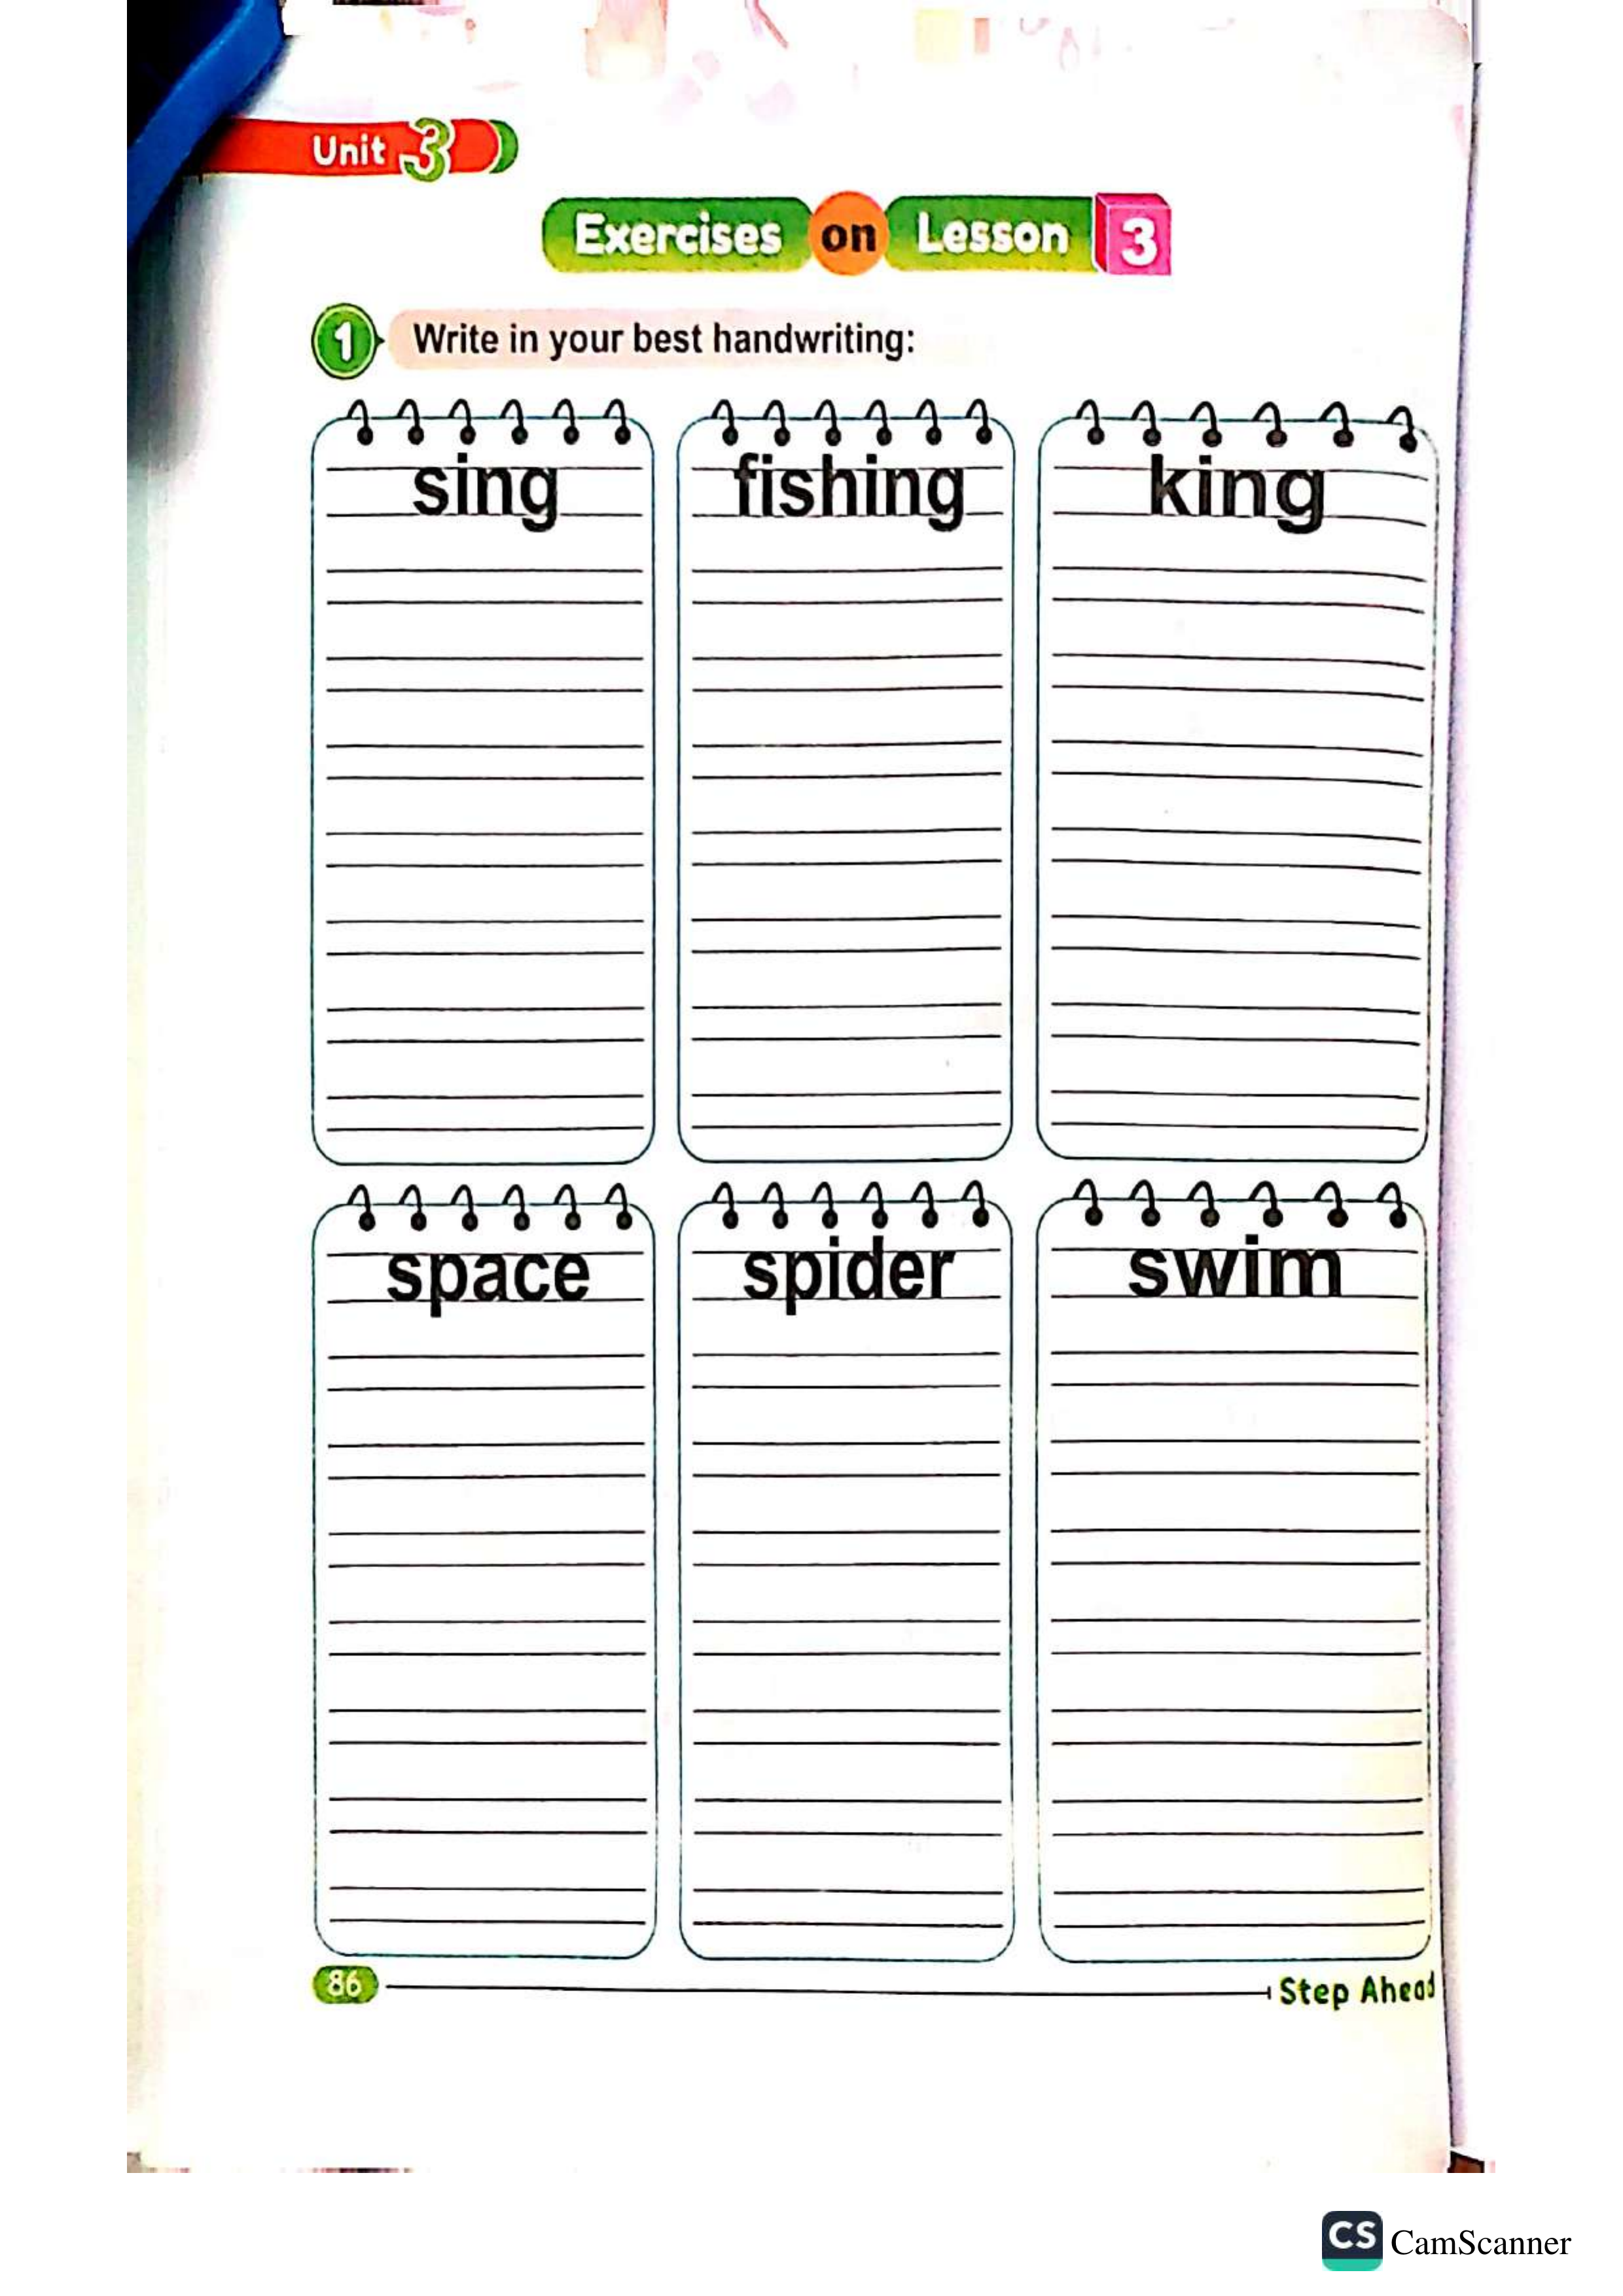 Unit 3
Exercises on Lesson 3
1 Write in your best handwriting:
sing fishing king
space spider swim
86 Step Ahead
CS CamScanner